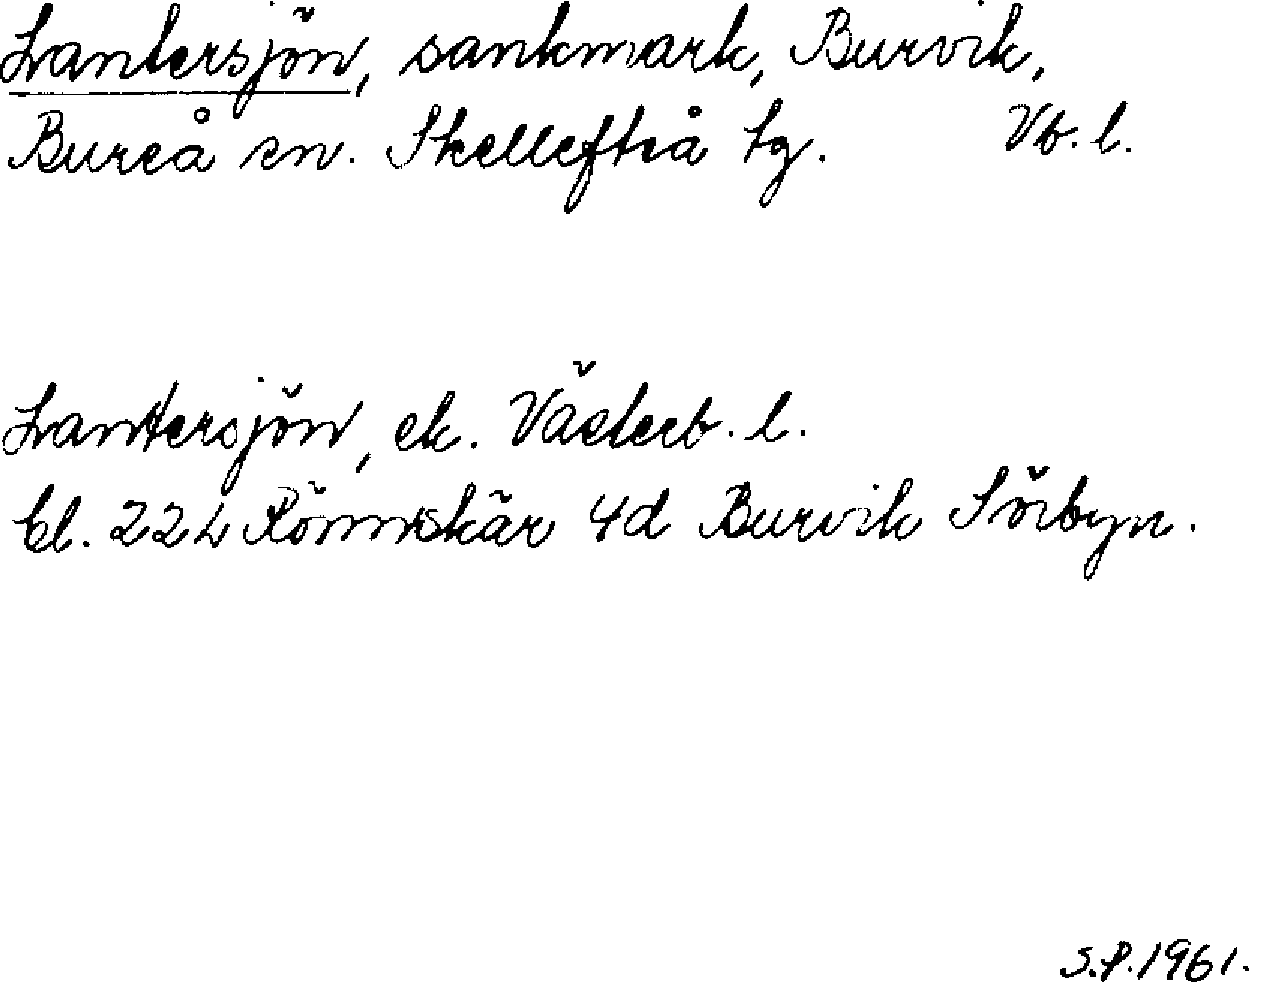 Lantersjön, sankmark, Burvik,
Bureå sn. Skellefteå tg. Vb. l.
Lantersjön, ek. Västerb. l.
bl. 22 L Rönnskär 4d Burvik Sörbyn.
S.P. 1961.